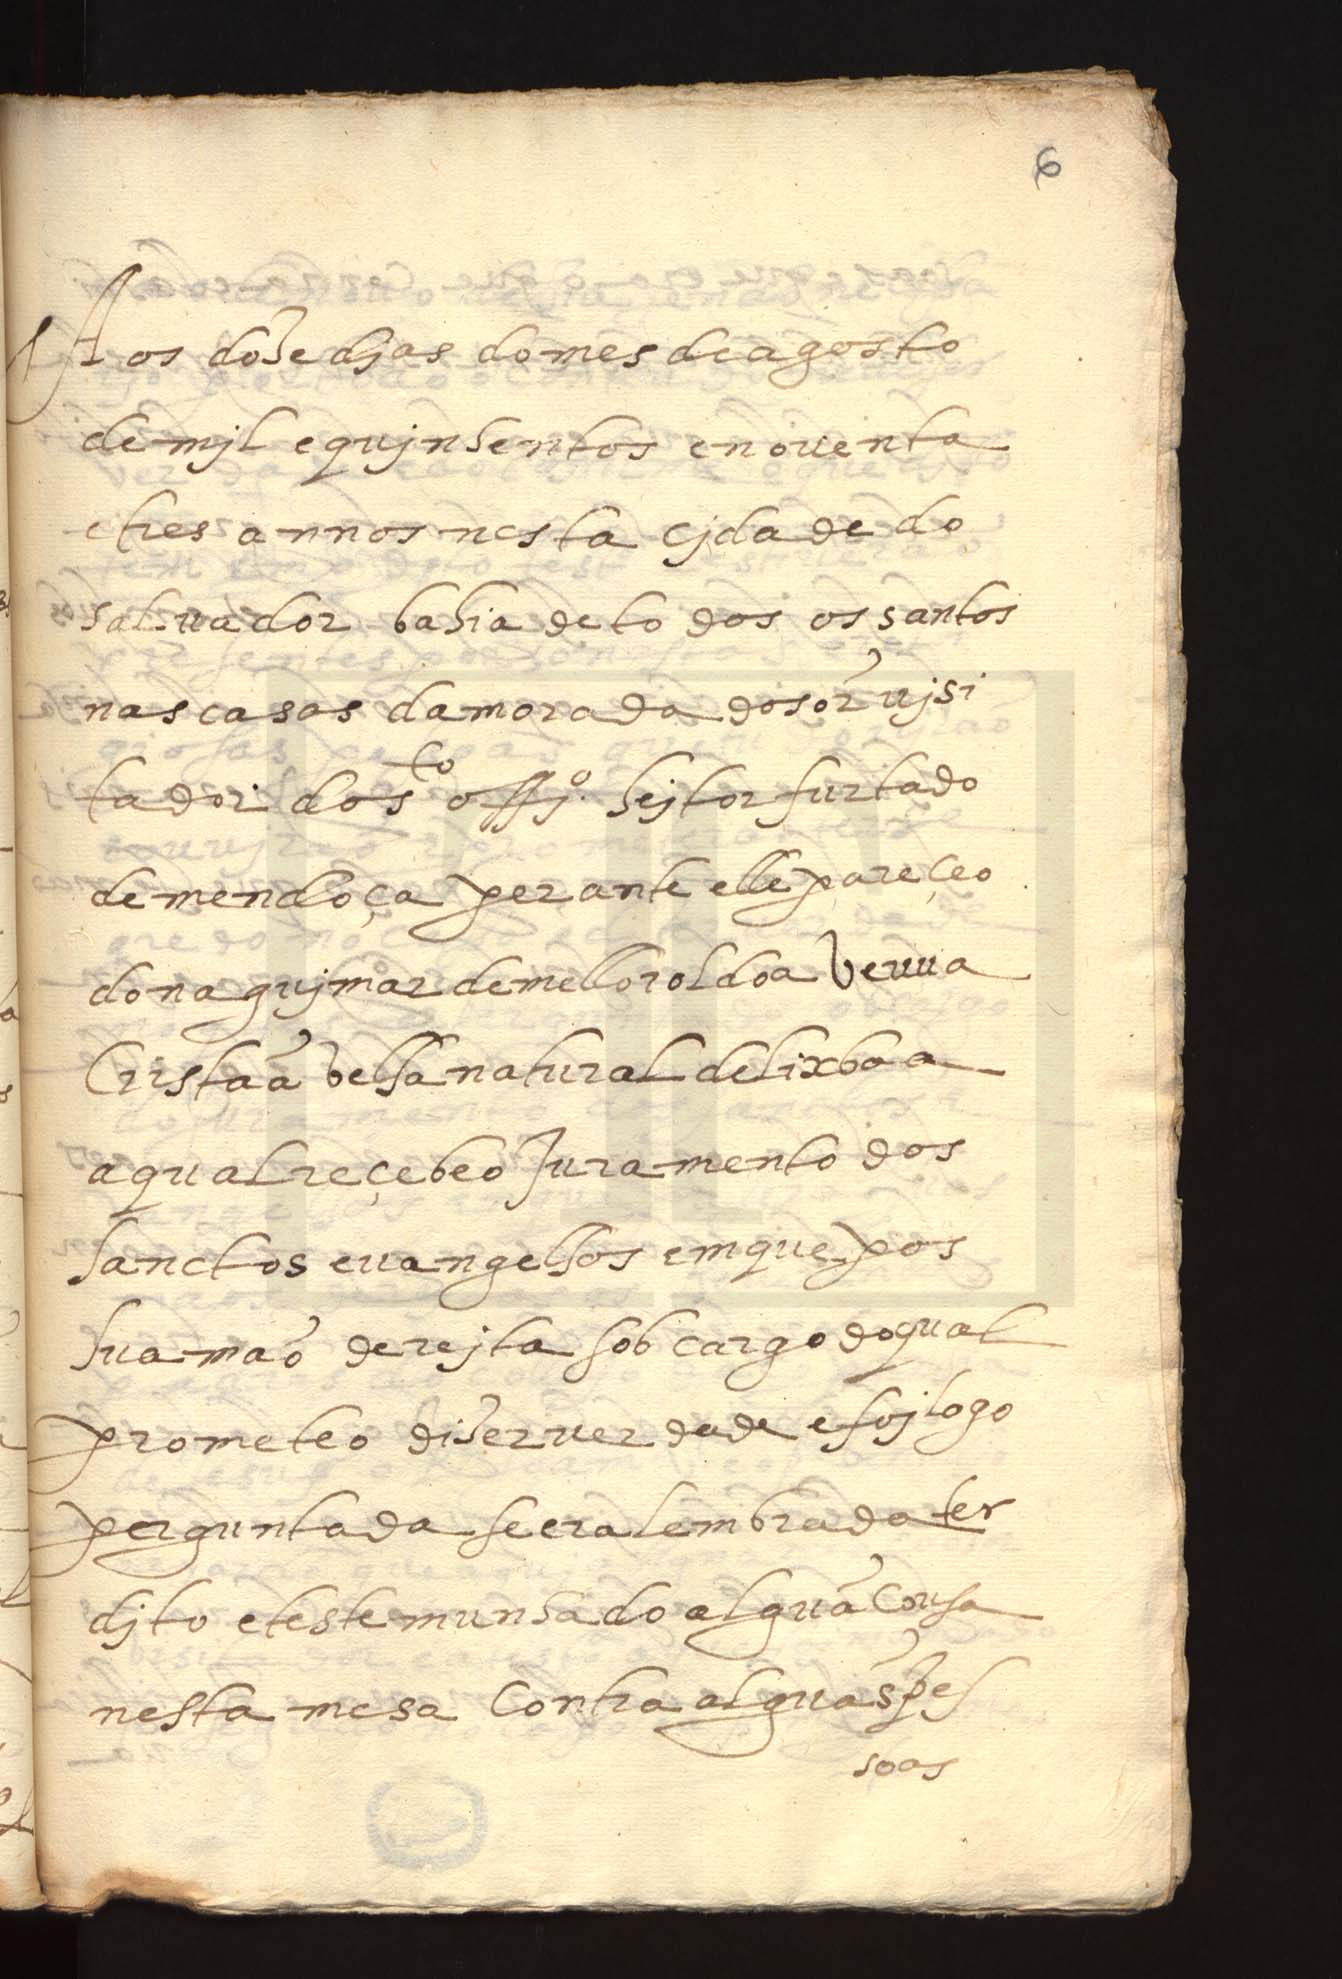 6
Aos dose djas do mes de agosto
de mjl e qujnhentos e noventa
e tres annos nesta cjdade do
salvador bahia de todos os santos
nas casas da morada do sor vjsi
tador do sto offjo. hejtor furtado
de mendoça perante elle pareçeo
dona gujmar de mello roldoa veuva
Cristaã velha natural de lixboa
a qual reçebeo Juramento dos
sanctos evangelhos em que pos
sua maõ derejta sob cargo do qual
prometeo diser verdade e foj logo
perguntada se era lembrada ter
djto e testemunhado alguã cousa
nesta mesa Contra alguãs pes
soas